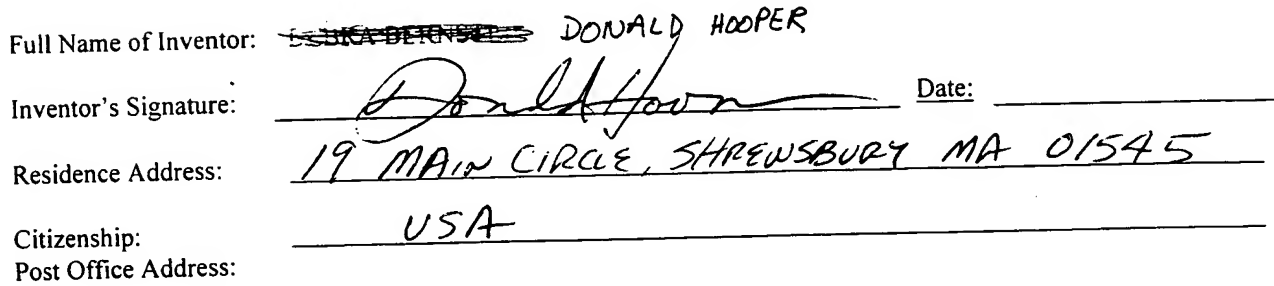 Full Name of Inventor: DONALD HOOPER
Inventor's Signature: Donald Hooper Date:
Residence Address: 19 MAIN CIRCLE, SHREWSBURY MA 01545
Citizenship: USA
Post Office Address: